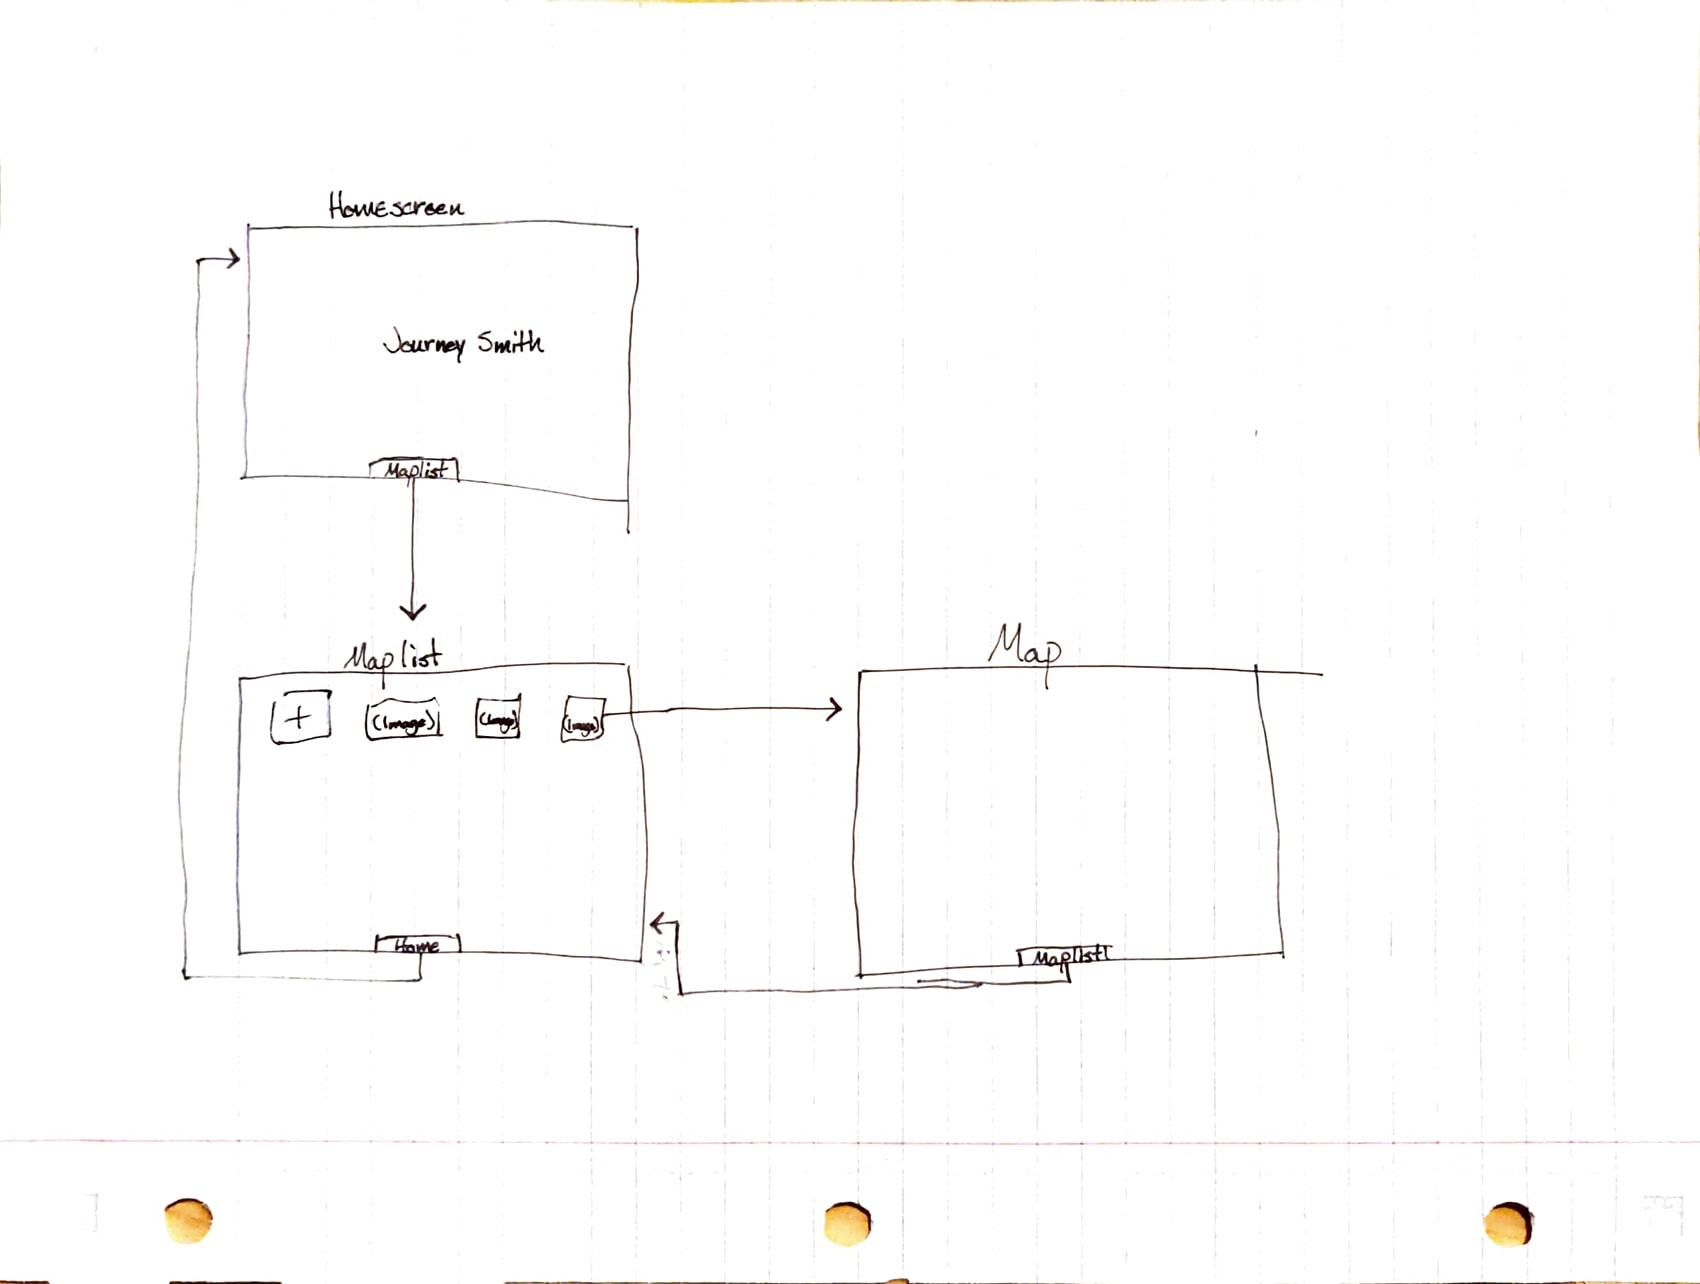 Homescreen
Journey Smith
Maplist
Maplist
Map
+ (Image) (Image) (Image)
Home
Maplist